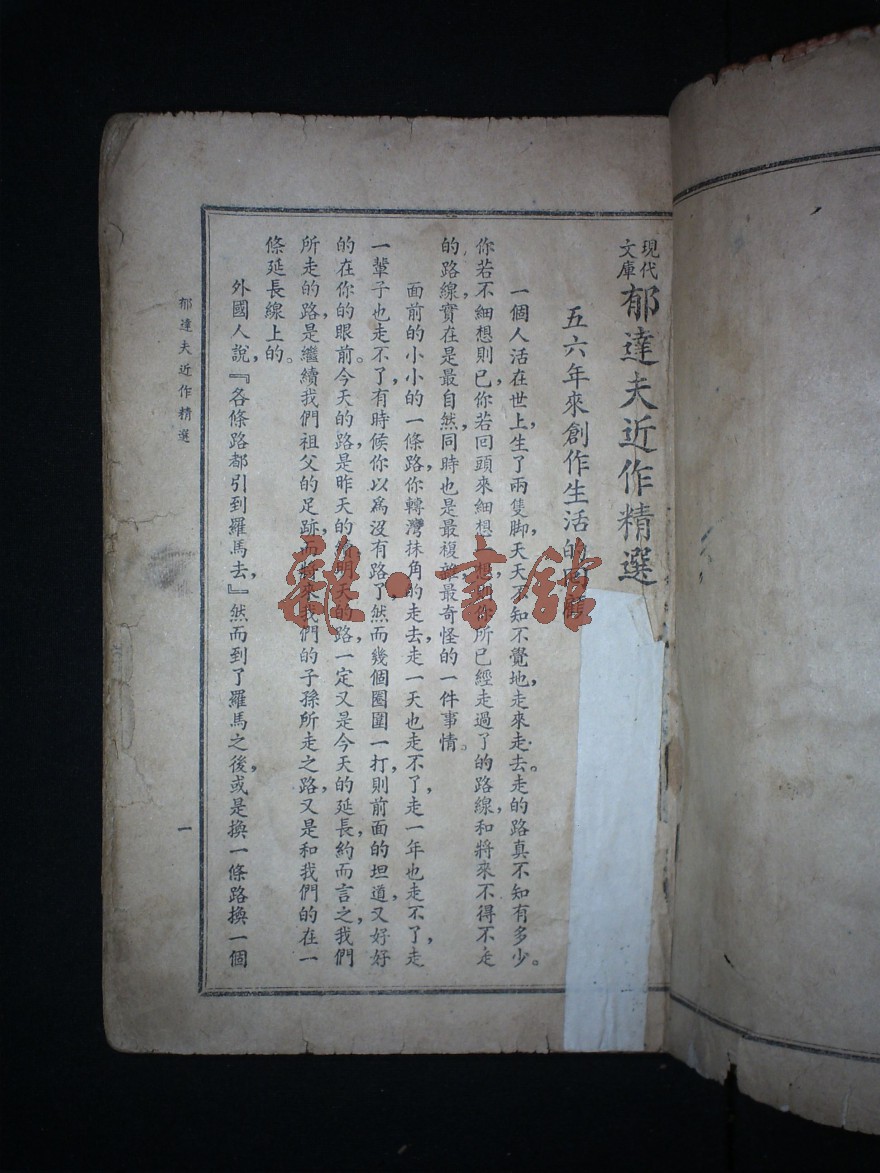 現代
文庫
郁達夫近作精選
五六年來創作生活的回顧
一個人活在世上，生了兩隻脚，天天不知不覺地走來走去。走的路真不知有多少。
你若不細想則已，你若回頭來細想一想，則你所已經走過了的路線，和將來不得不走
的路線，實在是最自然，同時也是最複雜，最奇怪的一件事情。
面前的小小的一條路，你轉灣抹角的走去，走一天也走不了，走一年也走不了，走
一輩子也走不了，有時候你以爲沒有路了，然而幾個圈圈一打，則前面的坦道，又好好
的在你的眼前。今天的路，是昨天的續，明天的路，一定又是今天的延長，約而言之，我們
所走的路，是繼續我們祖父的足跡，而將來我們的子孫所走之路，又是和我們的在一
條延長線上的。
外國人說，『各條路都引到羅馬去，』然而到了羅馬之後，或是換一條路換一個
郁達夫近作精選
一
雜·書館